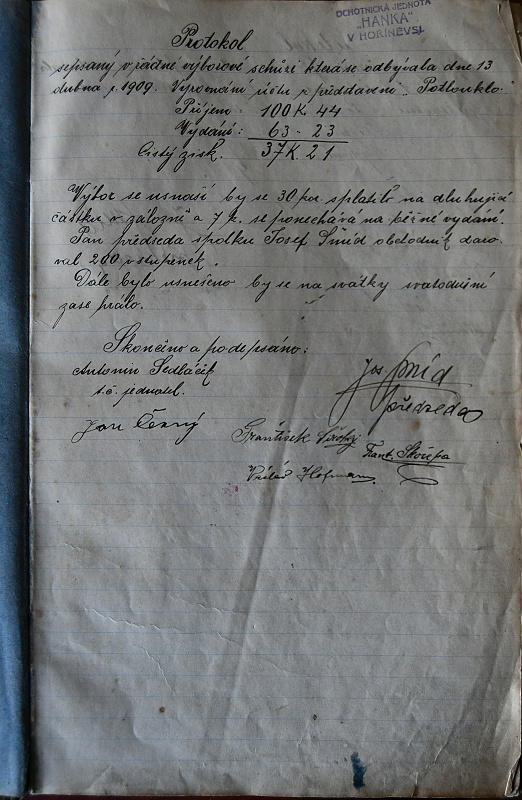 OCHOTNICKÁ JEDNOTA
"HANKA"
V HOŘINĚVSI
Protokol
sepsaný v řádné výborové schůzi která se odbývala dne 13
dubna r. 1909. Vyrovnání účtu z představení „Potlouklo.
Příjem: 100 K. 44
Vydání: 63 - 23
Čistý zisk. 37 K. 21
Výbor se usnáší by se 30 kor splatilo na dluhující
částku v záložně a 7 k. se ponechává na běžné vydání.
Pan předseda spolku Josef Šmíd obchodník daro
val 200 vstupenek.
Dále bylo usnešeno by se na svátky svatodušní
zase hrálo.
Skončeno a podepsáno:
Antonín Sedláček
t.č. jednatel.
Jos Šmíd
předseda
Jan Černý
František
Frant. Skořepa
Hofman